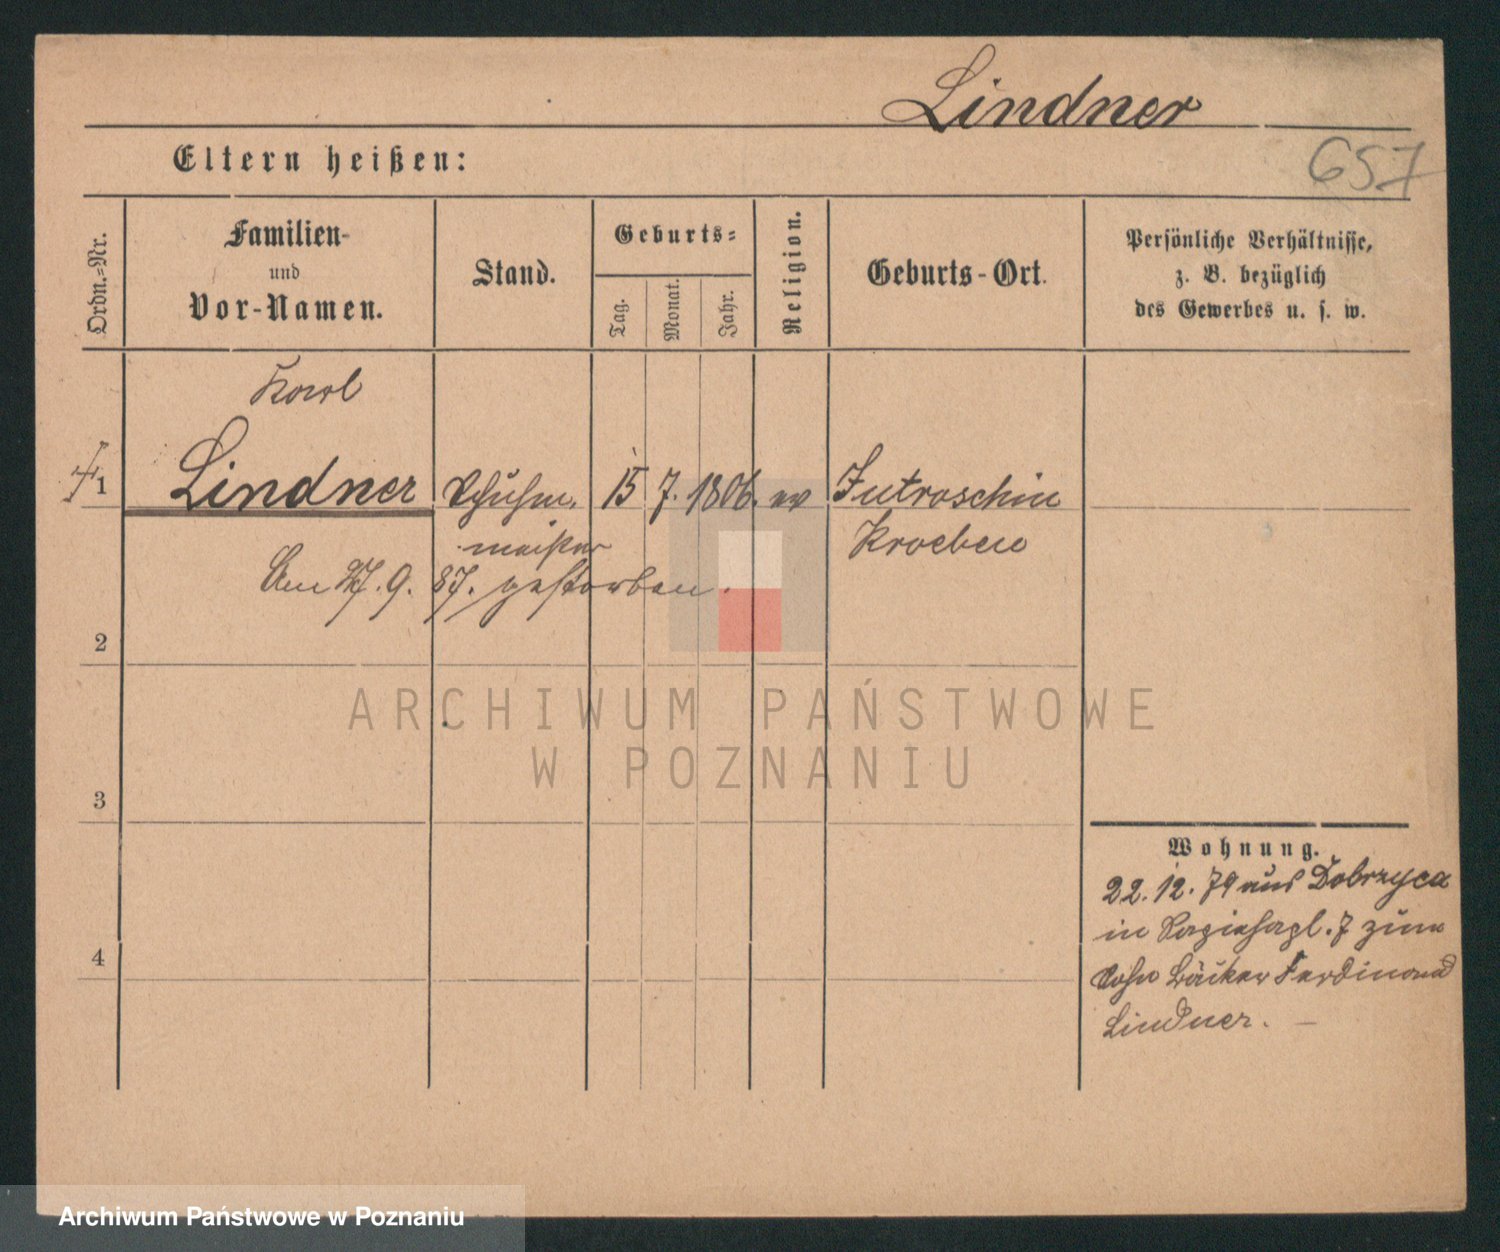 Lindner
657
Eltern heißen:
Ordn.-Nr.
Familien-
und
Vor-Namen.
Stand.
Geburts-
Tag.
Monat.
Jahr.
Religion.
Geburts-Ort.
Persönliche Verhältnisse,
z. B. bezüglich
des Gewerbes u. s. w.
Karl
1 Lindner Schuhm. 15 7. 1806. ev Jutroschin
meister Kroeben
Am 27. 9. 87. gestorben.
2
ARCHIWUM PAŃSTWOWE
W POZNANIU
3
Wohnung.
22. 12. 79 aus Dobrzyca
in 7 zum
Sohn Bäcker Ferdinand
4
Lindner. —
Archiwum Państwowe w Poznaniu